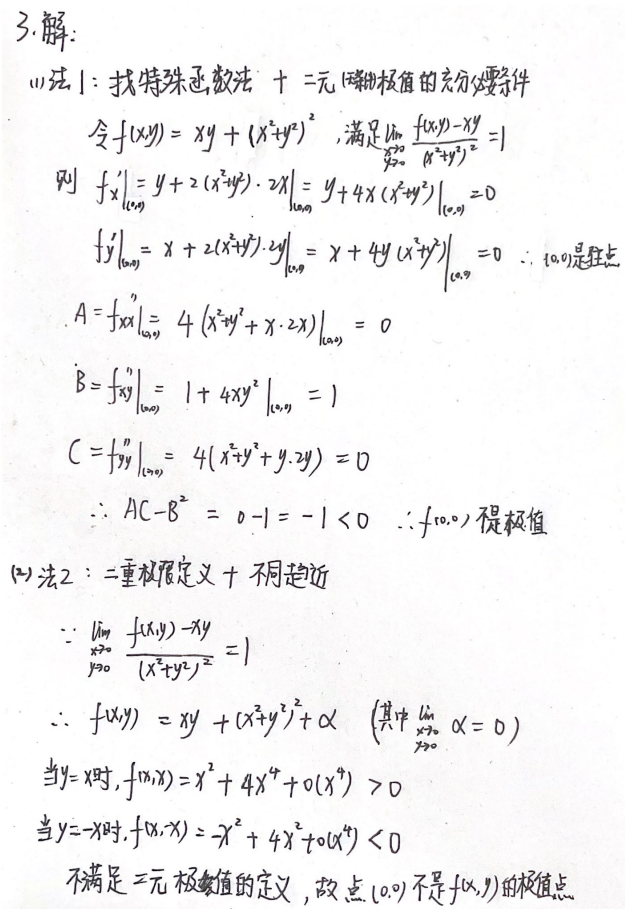 3.解:
(1)法1: 找特殊函数法 + 二元极值的充分必要条件
令f(x,y) = xy + (x²+y²)² ,满足 lim x→0 y→0 f(x,y)-xy / (x²+y²)² = 1
则 fx'|(0,0) = y + 2(x²+y²)·2x|(0,0) = y + 4x(x²+y²)|(0,0) = 0
fy'|(0,0) = x + 2(x²+y²)·2y|(0,0) = x + 4y(x²+y²)|(0,0) = 0 ∴ (0,0)是驻点
A = fxx''|(0,0) = 4(x²+y²+x·2x)|(0,0) = 0
B = fxy''|(0,0) = 1 + 4xy²|(0,0) = 1
C = fyy''|(0,0) = 4(x²+y²+y·2y) = 0
∴ AC-B² = 0-1 = -1 < 0 ∴ f(0,0) 不是极值
(2)法2: 二重极限定义 + 不同趋近
∵ lim x→0 y→0 f(x,y)-xy / (x²+y²)² = 1
∴ f(x,y) = xy + (x²+y²)² + α (其中 lim x→0 y→0 α = 0)
当y=x时, f(x,x) = x² + 4x⁴ + o(x⁴) > 0
当y=-x时, f(x,-x) = -x² + 4x² + o(x⁴) < 0
不满足二元极值的定义, 故点(0,0)不是f(x,y)的极值点